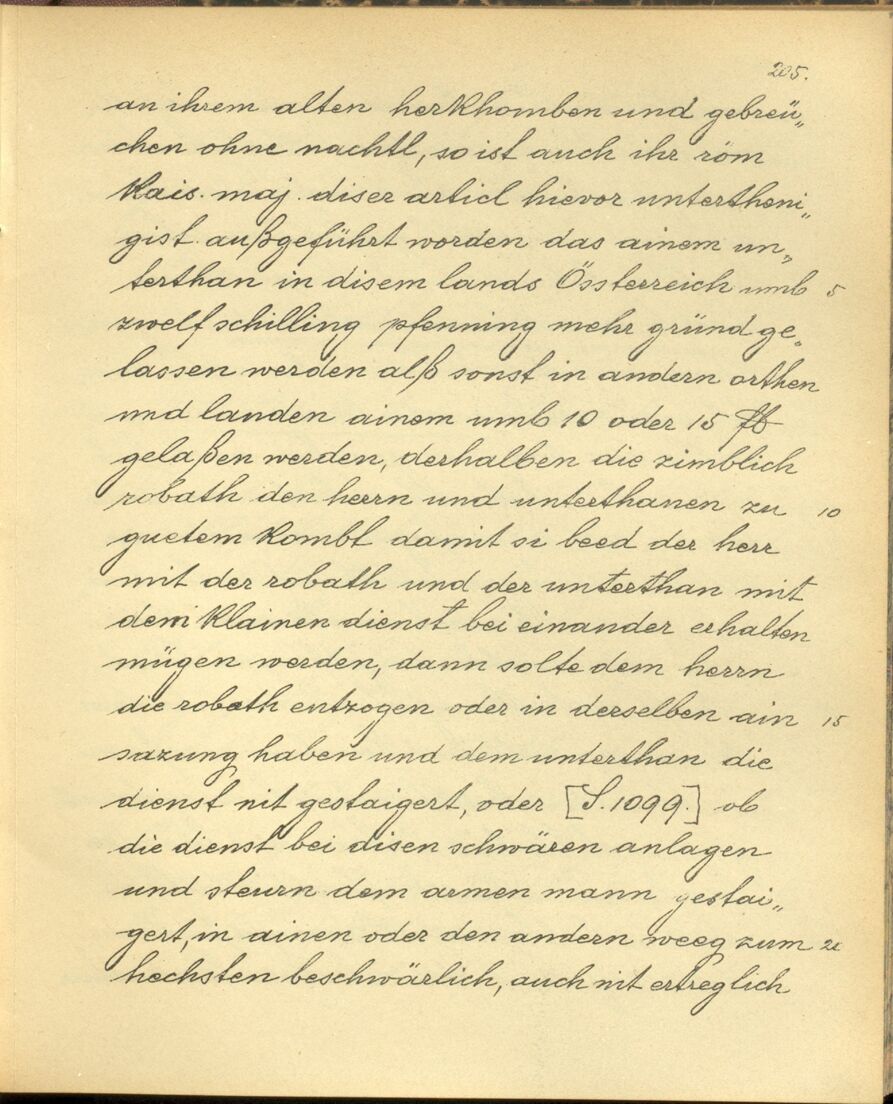 205.
an ihrem alten herkhomben und gebreü„
chen ohne nachtl, so ist auch ihr röm
Kais. maj. diser articl hievor untertheni„
gist außgeführt worden das ainem un„
terthan in disem lands Össterreich umb 5
zwelf schilling pfenning mehr gründ ge„
lassen werden alß sonst in andern orthen
und landen ainem umb 10 oder 15 ℔
gelaßen werden, derhalben die zimblich
robath den herrn und unterthanen zu 10
guetem kombt damit si beed der herr
mit der robath und der unterthan mit
dem klainen dienst bei einander erhalten
mügen werden, dann solte dem herrn
die robath entzogen oder in derselben ain 15
sazung haben und dem unterthan die
dienst nit gestaigert, oder [S. 1099.] ob
die dienst bei disen schwären anlagen
und steurn dem armen mann gestai„
gert, in ainen oder den andern weeg zum 20
hechsten beschwärlich, auch nit ertreglich